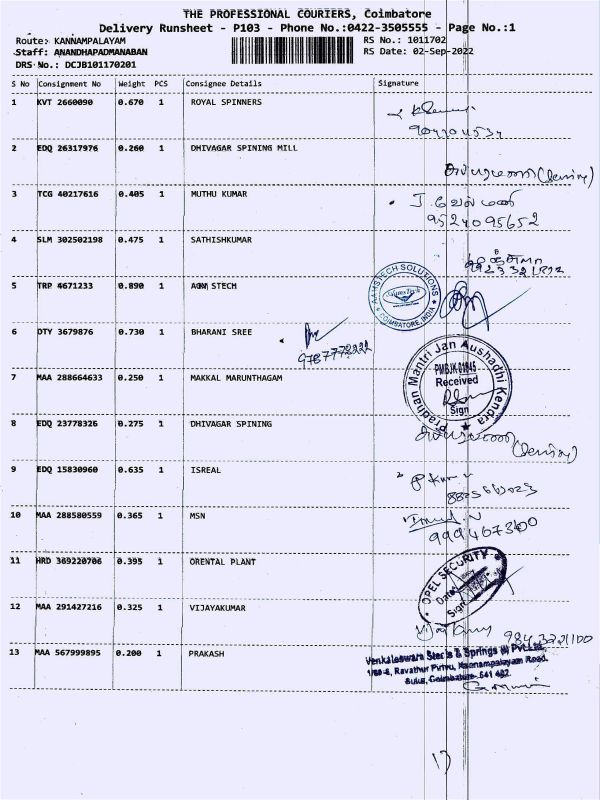 THE PROFESSIONAL COURIERS, Coimbatore
Delivery Runsheet - P103 - Phone No.:0422-3505555 - Page No.:1
Route: KANNAMPALAYAM
RS No.: 1011702
Staff: ANANDHAPADMANABAN
RS Date: 02-Sep-2022
DRS No.: DCJB101170201
S No Consignment No Weight PCS Consignee Details Signature
1 KVT 2660090 0.670 1 ROYAL SPINNERS
2 EDQ 26317976 0.260 1 DHIVAGAR SPINING MILL
3 TCG 40217616 0.405 1 MUTHU KUMAR
J. வேல்மணி
9524095652
4 SLM 302502198 0.475 1 SATHISHKUMAR
5 TRP 4671233 0.890 1 STECH
AAMSTECH SOLUTIONS
COIMBATORE, INDIA
6 DTY 3679876 0.730 1 BHARANI SREE
9787772222
7 MAA 288664633 0.250 1 MAKKAL MARUNTHAGAM
Pradhan Mantri Jan Aushadhi Kendra
PMBJK 01845
Received
Sign
8 EDQ 23778326 0.275 1 DHIVAGAR SPINING
9 EDQ 15830960 0.635 1 ISREAL
10 MAA 288580559 0.365 1 MSN
9994673600
11 HRD 369220706 0.395 1 ORENTAL PLANT
OPEL SECURITY
Date
Sign
12 MAA 291427216 0.325 1 VIJAYAKUMAR
9843221100
13 MAA 567999895 0.200 1 PRAKASH
Venkaleswara Steels & Springs (I) Pvt.Ltd.
Ravathur Pirivu, Kannampalayam Road,
Sulur, Coimbatore-641 402.